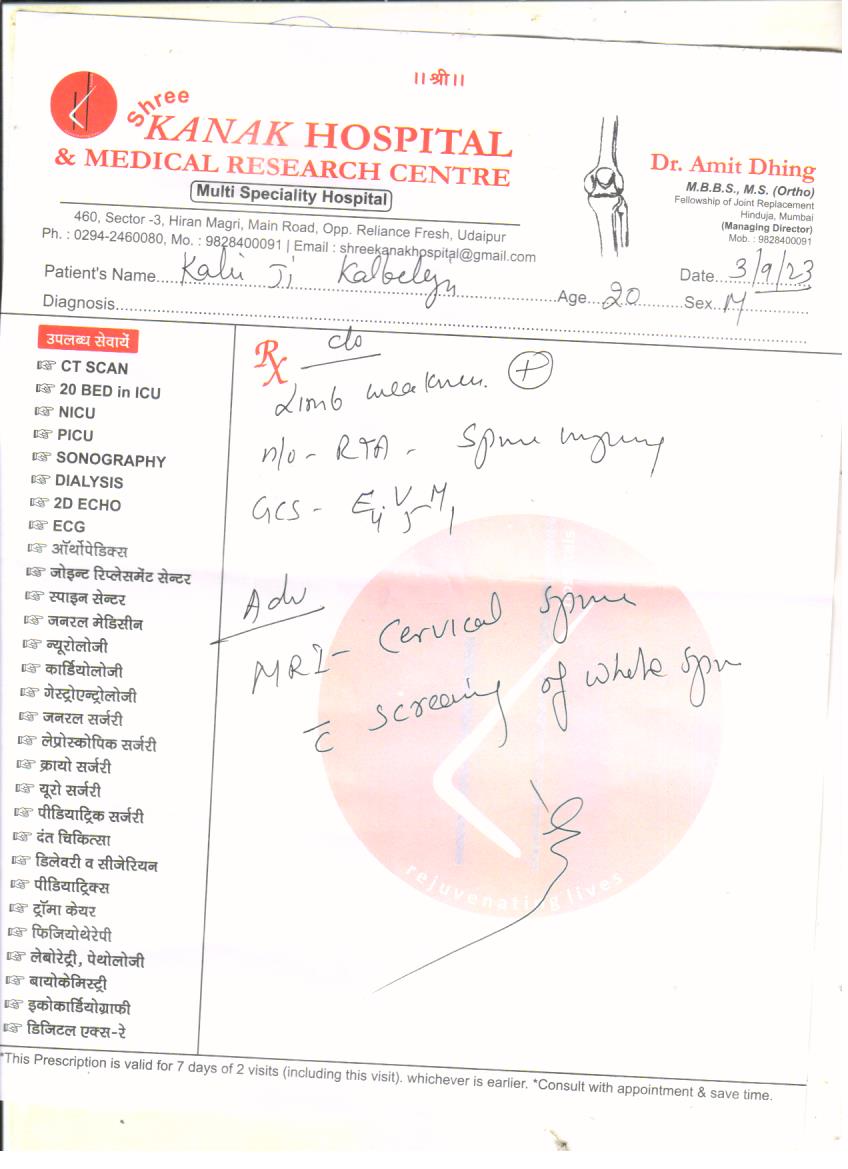 ।। श्री ।।
Shree
KANAK HOSPITAL
& MEDICAL RESEARCH CENTRE
Multi Speciality Hospital
460, Sector -3, Hiran Magri, Main Road, Opp. Reliance Fresh, Udaipur
Ph. : 0294-2460080, Mo. : 9828400091 | Email : shreekanakhospital@gmail.com
Dr. Amit Dhing
M.B.B.S., M.S. (Ortho)
Fellowship of Joint Replacement
Hinduja, Mumbai
(Managing Director)
Mob. : 9828400091
Patient's Name.... Ji ....Age...20......Sex...M
Date...3/9/23
Diagnosis....
उपलब्ध सेवायें
CT SCAN
20 BED in ICU
NICU
PICU
SONOGRAPHY
DIALYSIS
2D ECHO
ECG
ऑर्थोपेडिक्स
जोइन्ट रिप्लेसमेंट सेन्टर
स्पाइन सेन्टर
जनरल मेडिसीन
न्यूरोलोजी
कार्डियोलोजी
गेस्ट्रोएन्ट्रोलोजी
जनरल सर्जरी
लेप्रोस्कोपिक सर्जरी
क्रायो सर्जरी
यूरो सर्जरी
पीडियाट्रिक सर्जरी
दंत चिकित्सा
डिलेवरी व सीजेरियन
पीडियाट्रिक्स
ट्रॉमा केयर
फिजियोथेरेपी
लेबोरेट्री, पेथोलोजी
बायोकेमिस्ट्री
इकोकार्डियोग्राफी
डिजिटल एक्स-रे
Rx c/o
Limb weakness. +
h/o - RTA - Spine injury
GCS - E4 V5 M1
Adv
MRI - Cervical spine
c screening of whole spine
rejuvenating lives
*This Prescription is valid for 7 days of 2 visits (including this visit). whichever is earlier. *Consult with appointment & save time.